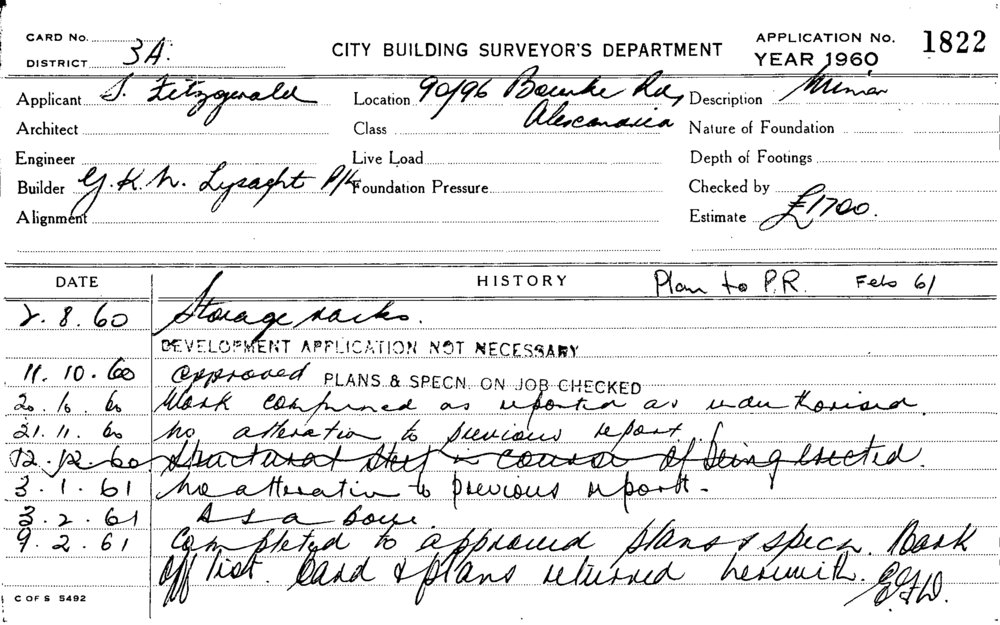 CARD No.
DISTRICT 3A.
CITY BUILDING SURVEYOR'S DEPARTMENT
APPLICATION No. 1822
YEAR 1960
Applicant S. Fitzgerald
Location 90/96 Bourke Rd, Alexandria
Description Minor
Architect
Class
Nature of Foundation
Engineer
Live Load
Depth of Footings
Builder G.K.N. Lysaght P/L
Foundation Pressure
Checked by
Alignment
Estimate £1700.
DATE HISTORY Plan to P.R. Feb 61
2.8.60 Storage racks.
DEVELOPMENT APPLICATION NOT NECESSARY
11.10.60 approved PLANS & SPECN. ON JOB CHECKED
Work confirmed as reported as
21.11.60 no alteration to previous report
12.12.60 structural steel in course of being erected.
3.1.61 No alteration to previous report.
3.2.61 As above.
9.2.61 Completed to approved plans & specn. Mark
off list. Card & plans returned herewith.
C OF S 5492